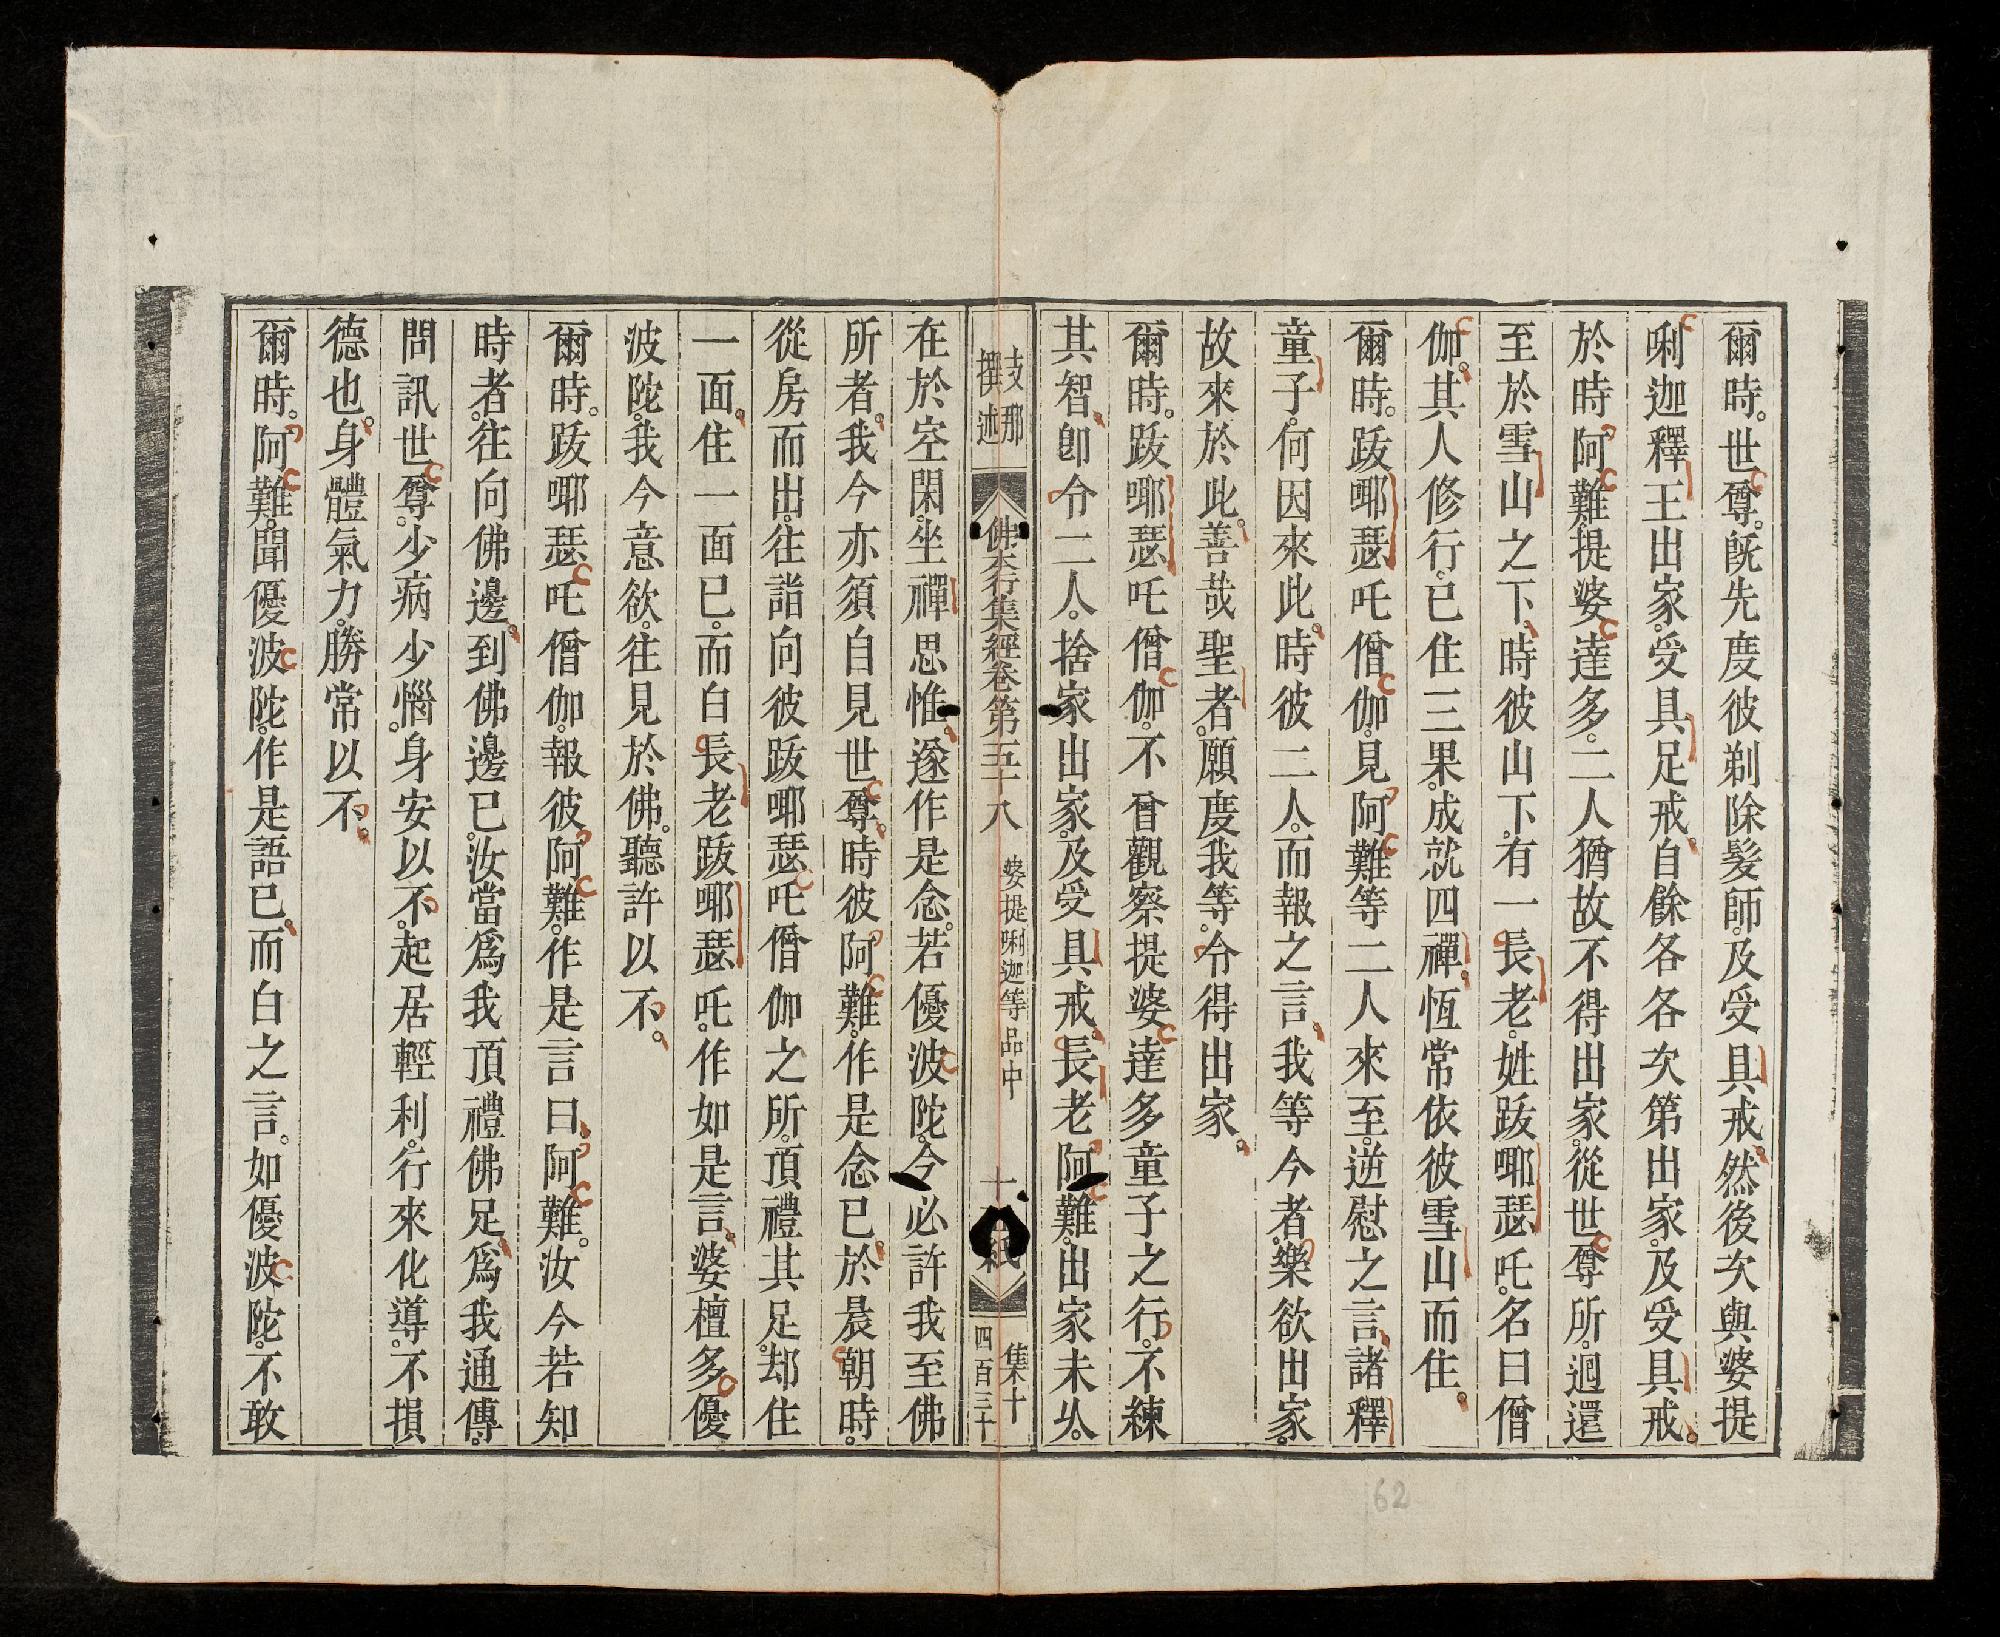 爾時。世尊。旣先度彼剃除髮師。及受具戒。然後次與婆提
唎迦釋王出家。受具足戒。自餘各各次第出家。及受具戒。
於時阿難。提婆達多。二人猶故不得出家。從世尊所。迴還
至於雪山之下。時彼山下。有一長老。姓跋㖿瑟吒。名曰僧
伽。其人修行。已住三果。成就四禪。恆常依彼雪山而住。
爾時。跋㖿瑟吒僧伽。見阿難等二人來至。逆慰之言。諸釋
童子。何因來此。時彼二人。而報之言。我等今者。樂欲出家。
故來於此。善哉聖者。願度我等。令得出家。
爾時。跋㖿瑟吒僧伽。不曾觀察提婆達多童子之行。不練
其智。卽令二人。捨家出家。及受具戒。長老阿難。出家未久。
支那
撰述
佛本行集經卷第五十八
婆提唎迦等品中
十一紙
集十
四百三十
在於空閑。坐禪思惟。遂作是念。若優波陀。今必許我至佛
所者。我今亦須自見世尊。時彼阿難。作是念已。於晨朝時。
從房而出。往詣向彼跋㖿瑟吒僧伽之所。頂禮其足。却住
一面。住一面已。而白長老跋㖿瑟吒。作如是言。婆檀多優
波陀。我今意欲。往見於佛。聽許以不。
爾時。跋㖿瑟吒僧伽。報彼阿難。作是言曰。阿難。汝今若知
時者。往向佛邊。到佛邊已。汝當爲我頂禮佛足。爲我通傳。
問訊世尊。少病少惱。身安以不。起居輕利。行來化導。不損
德也。身體氣力。勝常以不。
爾時。阿難。聞優波陀。作是語已。而白之言。如優波陀。不敢
62